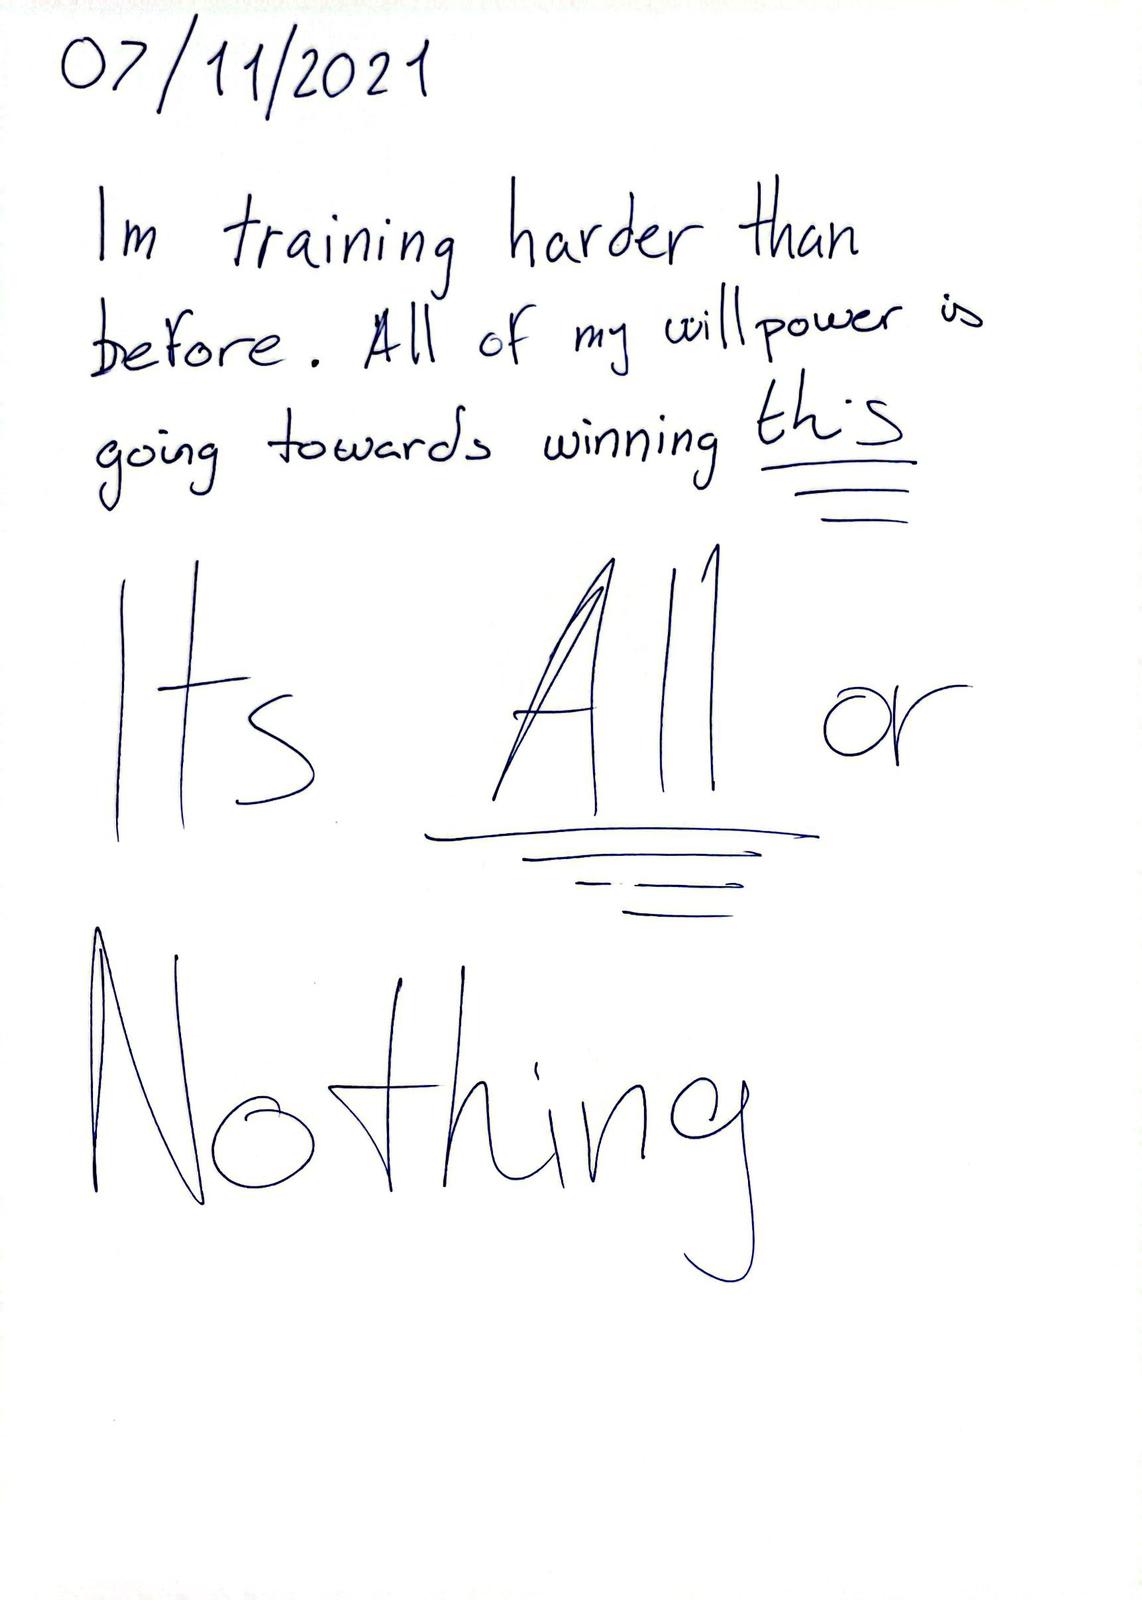 07/11/2021
Im training harder than
before. All of my willpower is
going towards winning this
Its All or
Nothing